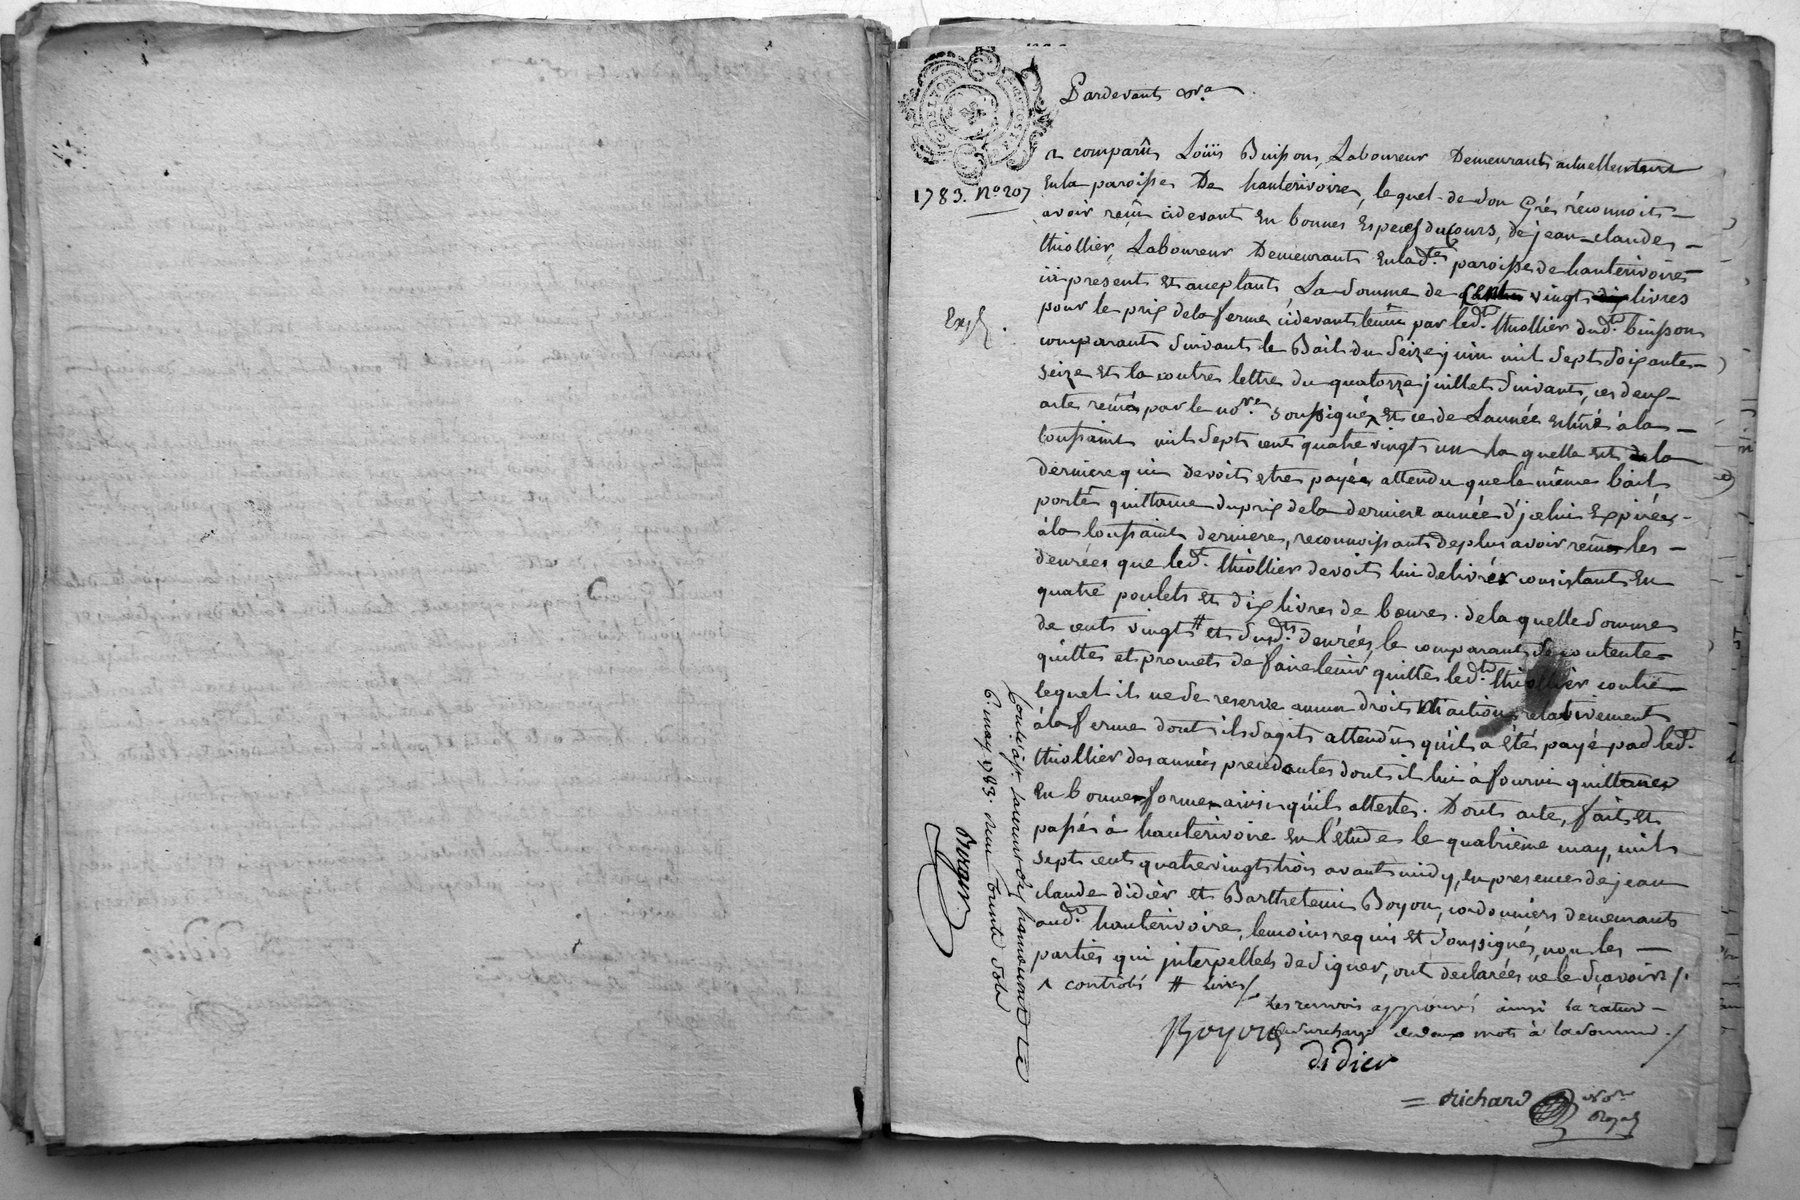 Pardevant
a comparû Loüis Buisson, Laboureur Demeurant actuellement
En la paroisse De hauterivoire, lequel de Son Gré réconnoit
avoir reçû cidevant En bonnes Especes du Cours, de jean claude
thiollier, Laboureur Demeurant En lad.e paroisse de hauterivoire
ici present Et acceptant La Somme de Cent vingt livres
pour le prix de la ferme cidevant tenüe par led.t thiollier dud.t buisson
comparant Suivant le Bail du Seize juin mil Sept Soixante
Seize Et la contre lettre du quatorze juillet Suivant, ces deux
acte reçus par le no.re Soussigné ^ Et ce de L'année Echüe à la
toussaint mil Sept cent quatre vingt un la quelle est la
derniere qui devoit etre payée attendu que le même bail
porte quittance du prix de la derniere année d'jcelui Expirée
à la toussaint derniere, reconnoissant de plus avoir reçu les
denrées que led.t thiollier devoit lui delivrer consistant En
quatre poulets Et dix livres de beure. de la quelle Somme
de cent vingt # et Susd.ts denrées, le comparant Se contente
quitte et promet de faire tenir quitte led.t thiollier contre
lequel il ne Se reserve aucun droit ni action relativement
à la ferme dont il s'agit attendu qu'il a été payé par led.t
thiollier des années precedentes dont il lui à fourni quittance
En bonne forme ainsi qu'il atteste. Dont acte, fait et
passé à hauterivoire En l'étude le quatrieme may, mil
Sept cent quatre vingt trois avant midy, En presence de jean
claude didier et Barthelemi Boyon, cordonniers demeurants
aud.t hauterivoire, temoins requis Et Soussignés, non les
parties qui jnterpellées de Signer, ont declarées ne le Sçavoir /.
^ contrôlés # Livres/
Les renvois approuvé ainsi la rature
Boyon La Surcharge de deux mots à la Somme /
didier
= Richard No.re
Royal
1783. N.o 207
Exp.
Contrôlé à St Laurent
6. may 1783. reçu